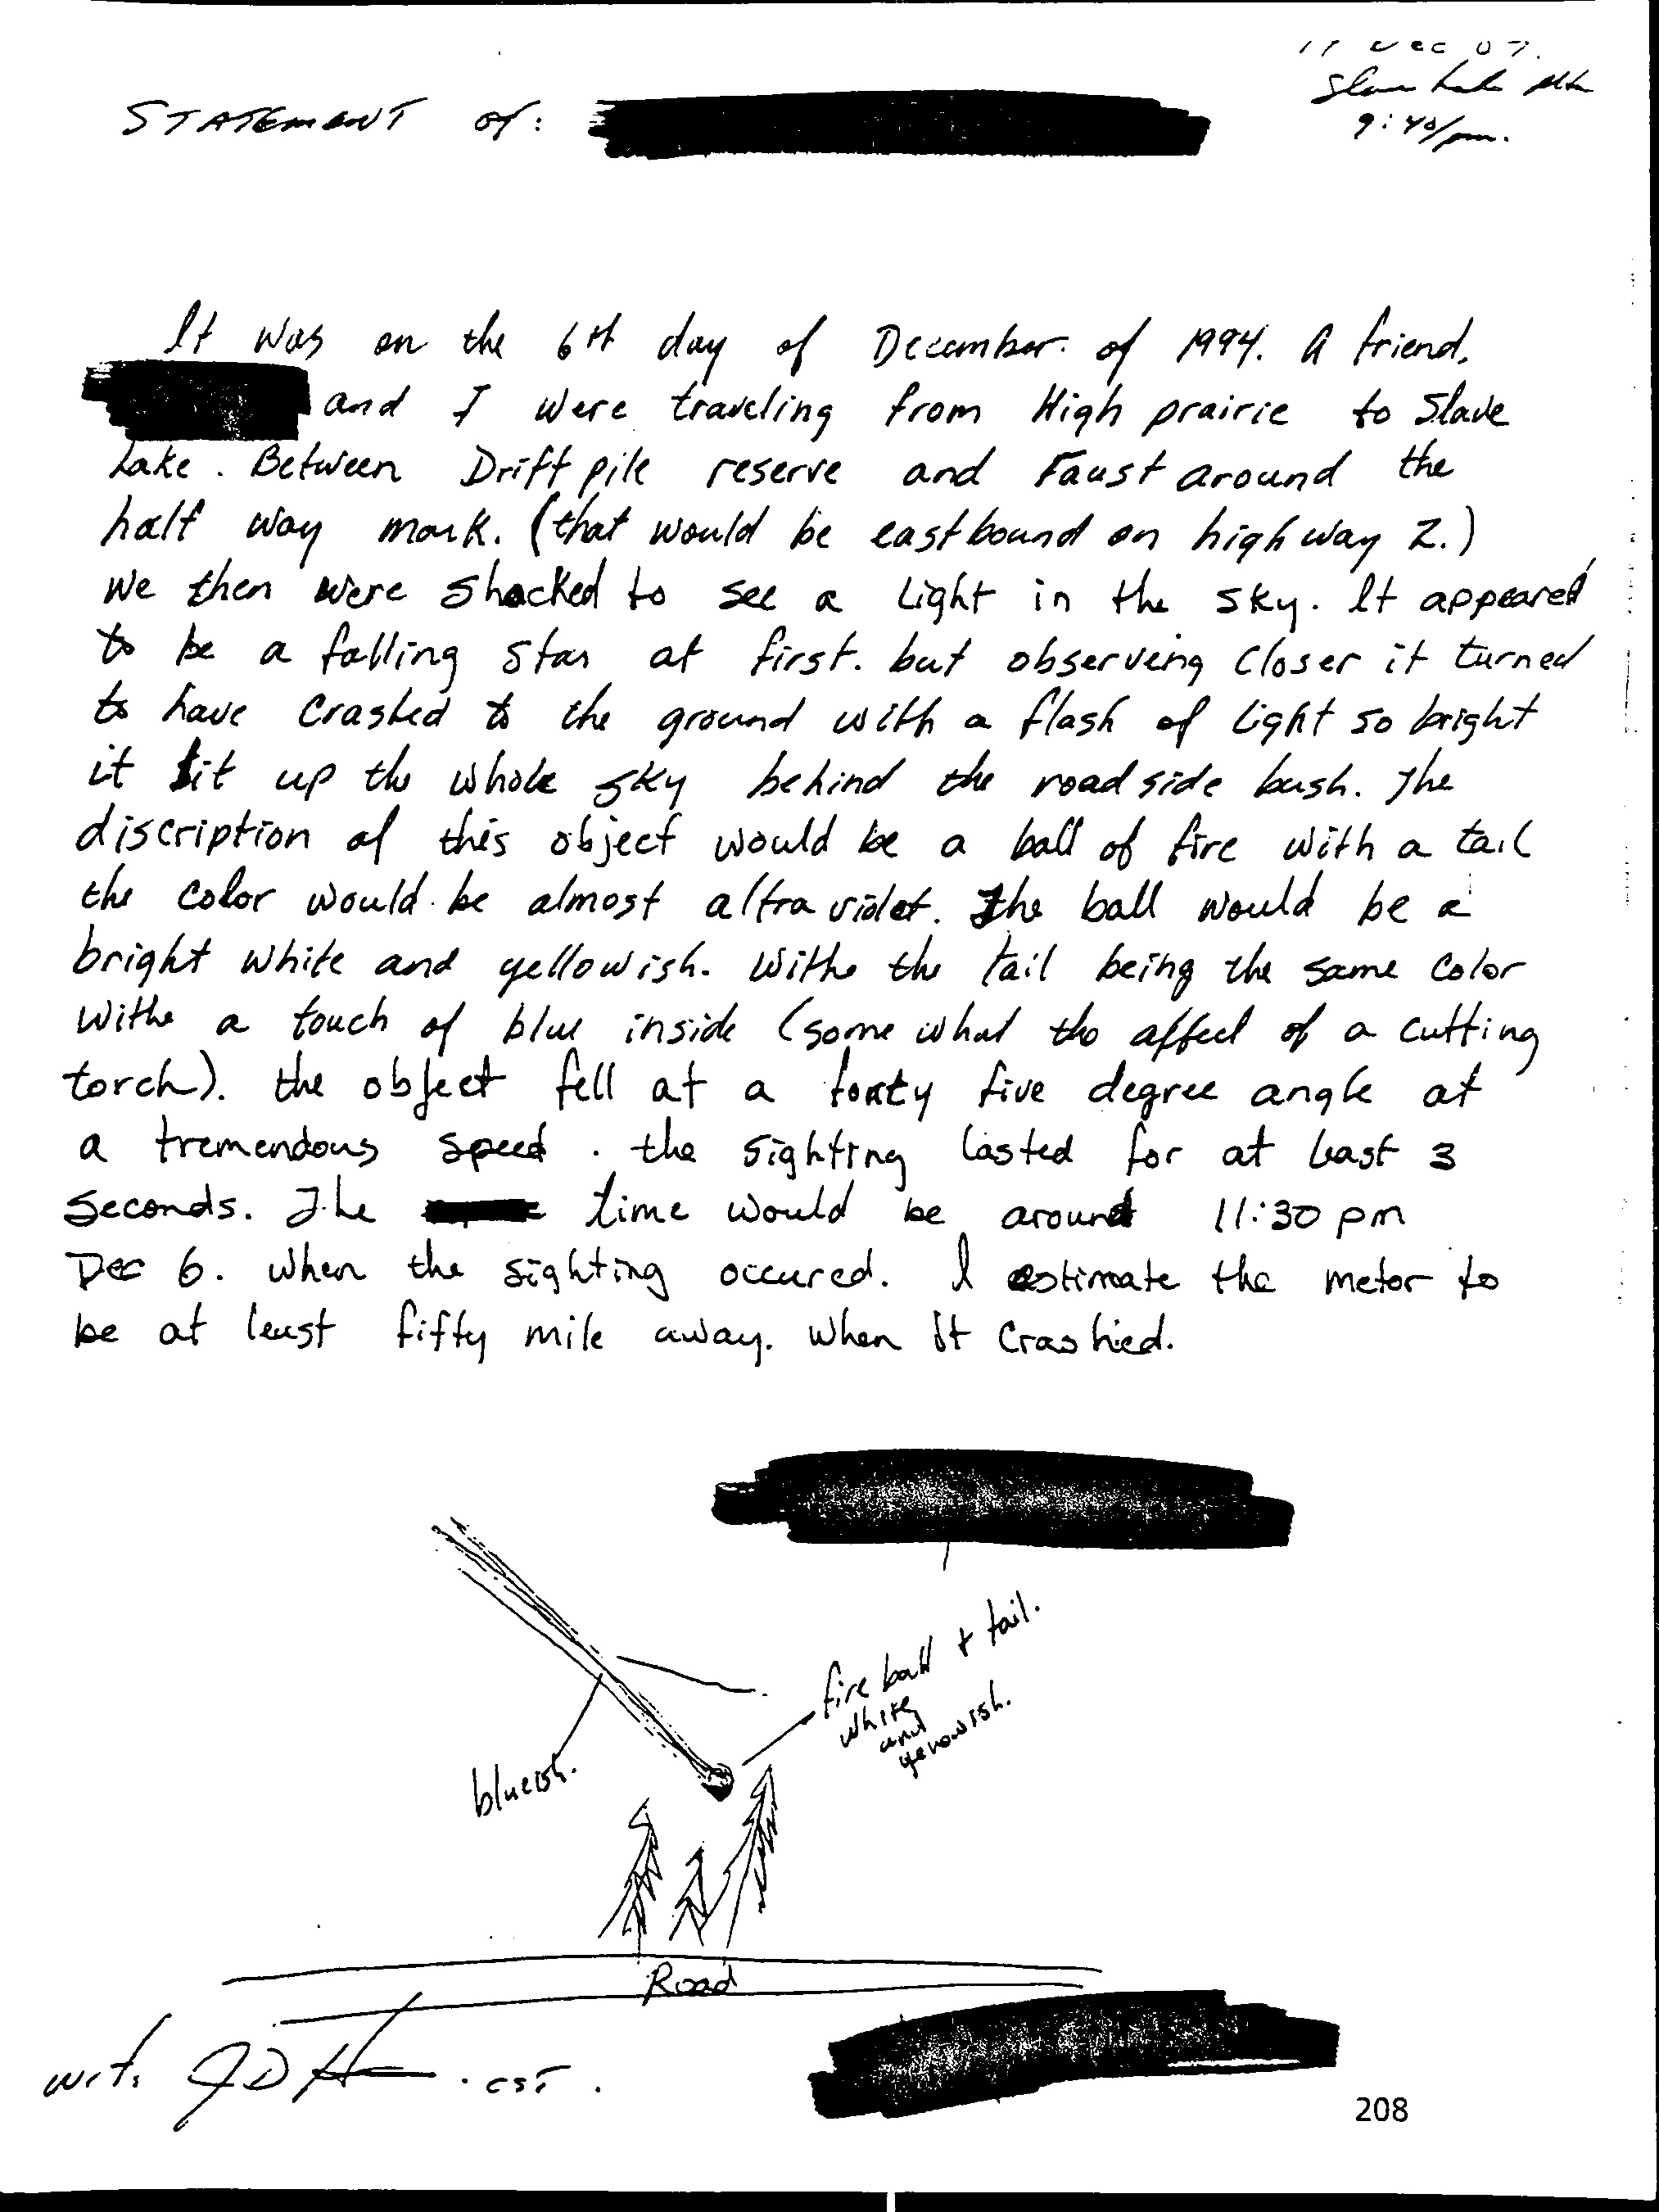 STATEMENT of:
Dec 07.
Slave Lake Alta
9:40/pm.
It was on the 6th day of December of 1994. A friend,
and I were traveling from High prairie to Slave
Lake. Between Drift pile reserve and Faust around the
half way mark. (that would be eastbound on highway 2.)
We then were shocked to see a Light in the sky. It appeared
to be a falling star at first. but observing closer it turned
to have crashed to the ground with a flash of light so bright
it lit up the whole sky behind the roadside bush. The
discription of this object would be a ball of fire with a tail
the color would be almost altraviolet. The ball would be a
bright white and yellowish. Withe the tail being the same color
Withe a touch of blue inside (some what the affect of a cutting
torch). the object fell at a forty five degree angle at
a tremendous speed. the sighting lasted for at least 3
seconds. The time would be around 11:30 pm
Dec 6. when the sighting occured. I estimate the metor to
be at least fifty mile away. When it Crashed.
fire ball + tail.
white
and
yellowish.
blueish.
Road
wit. CST.
208